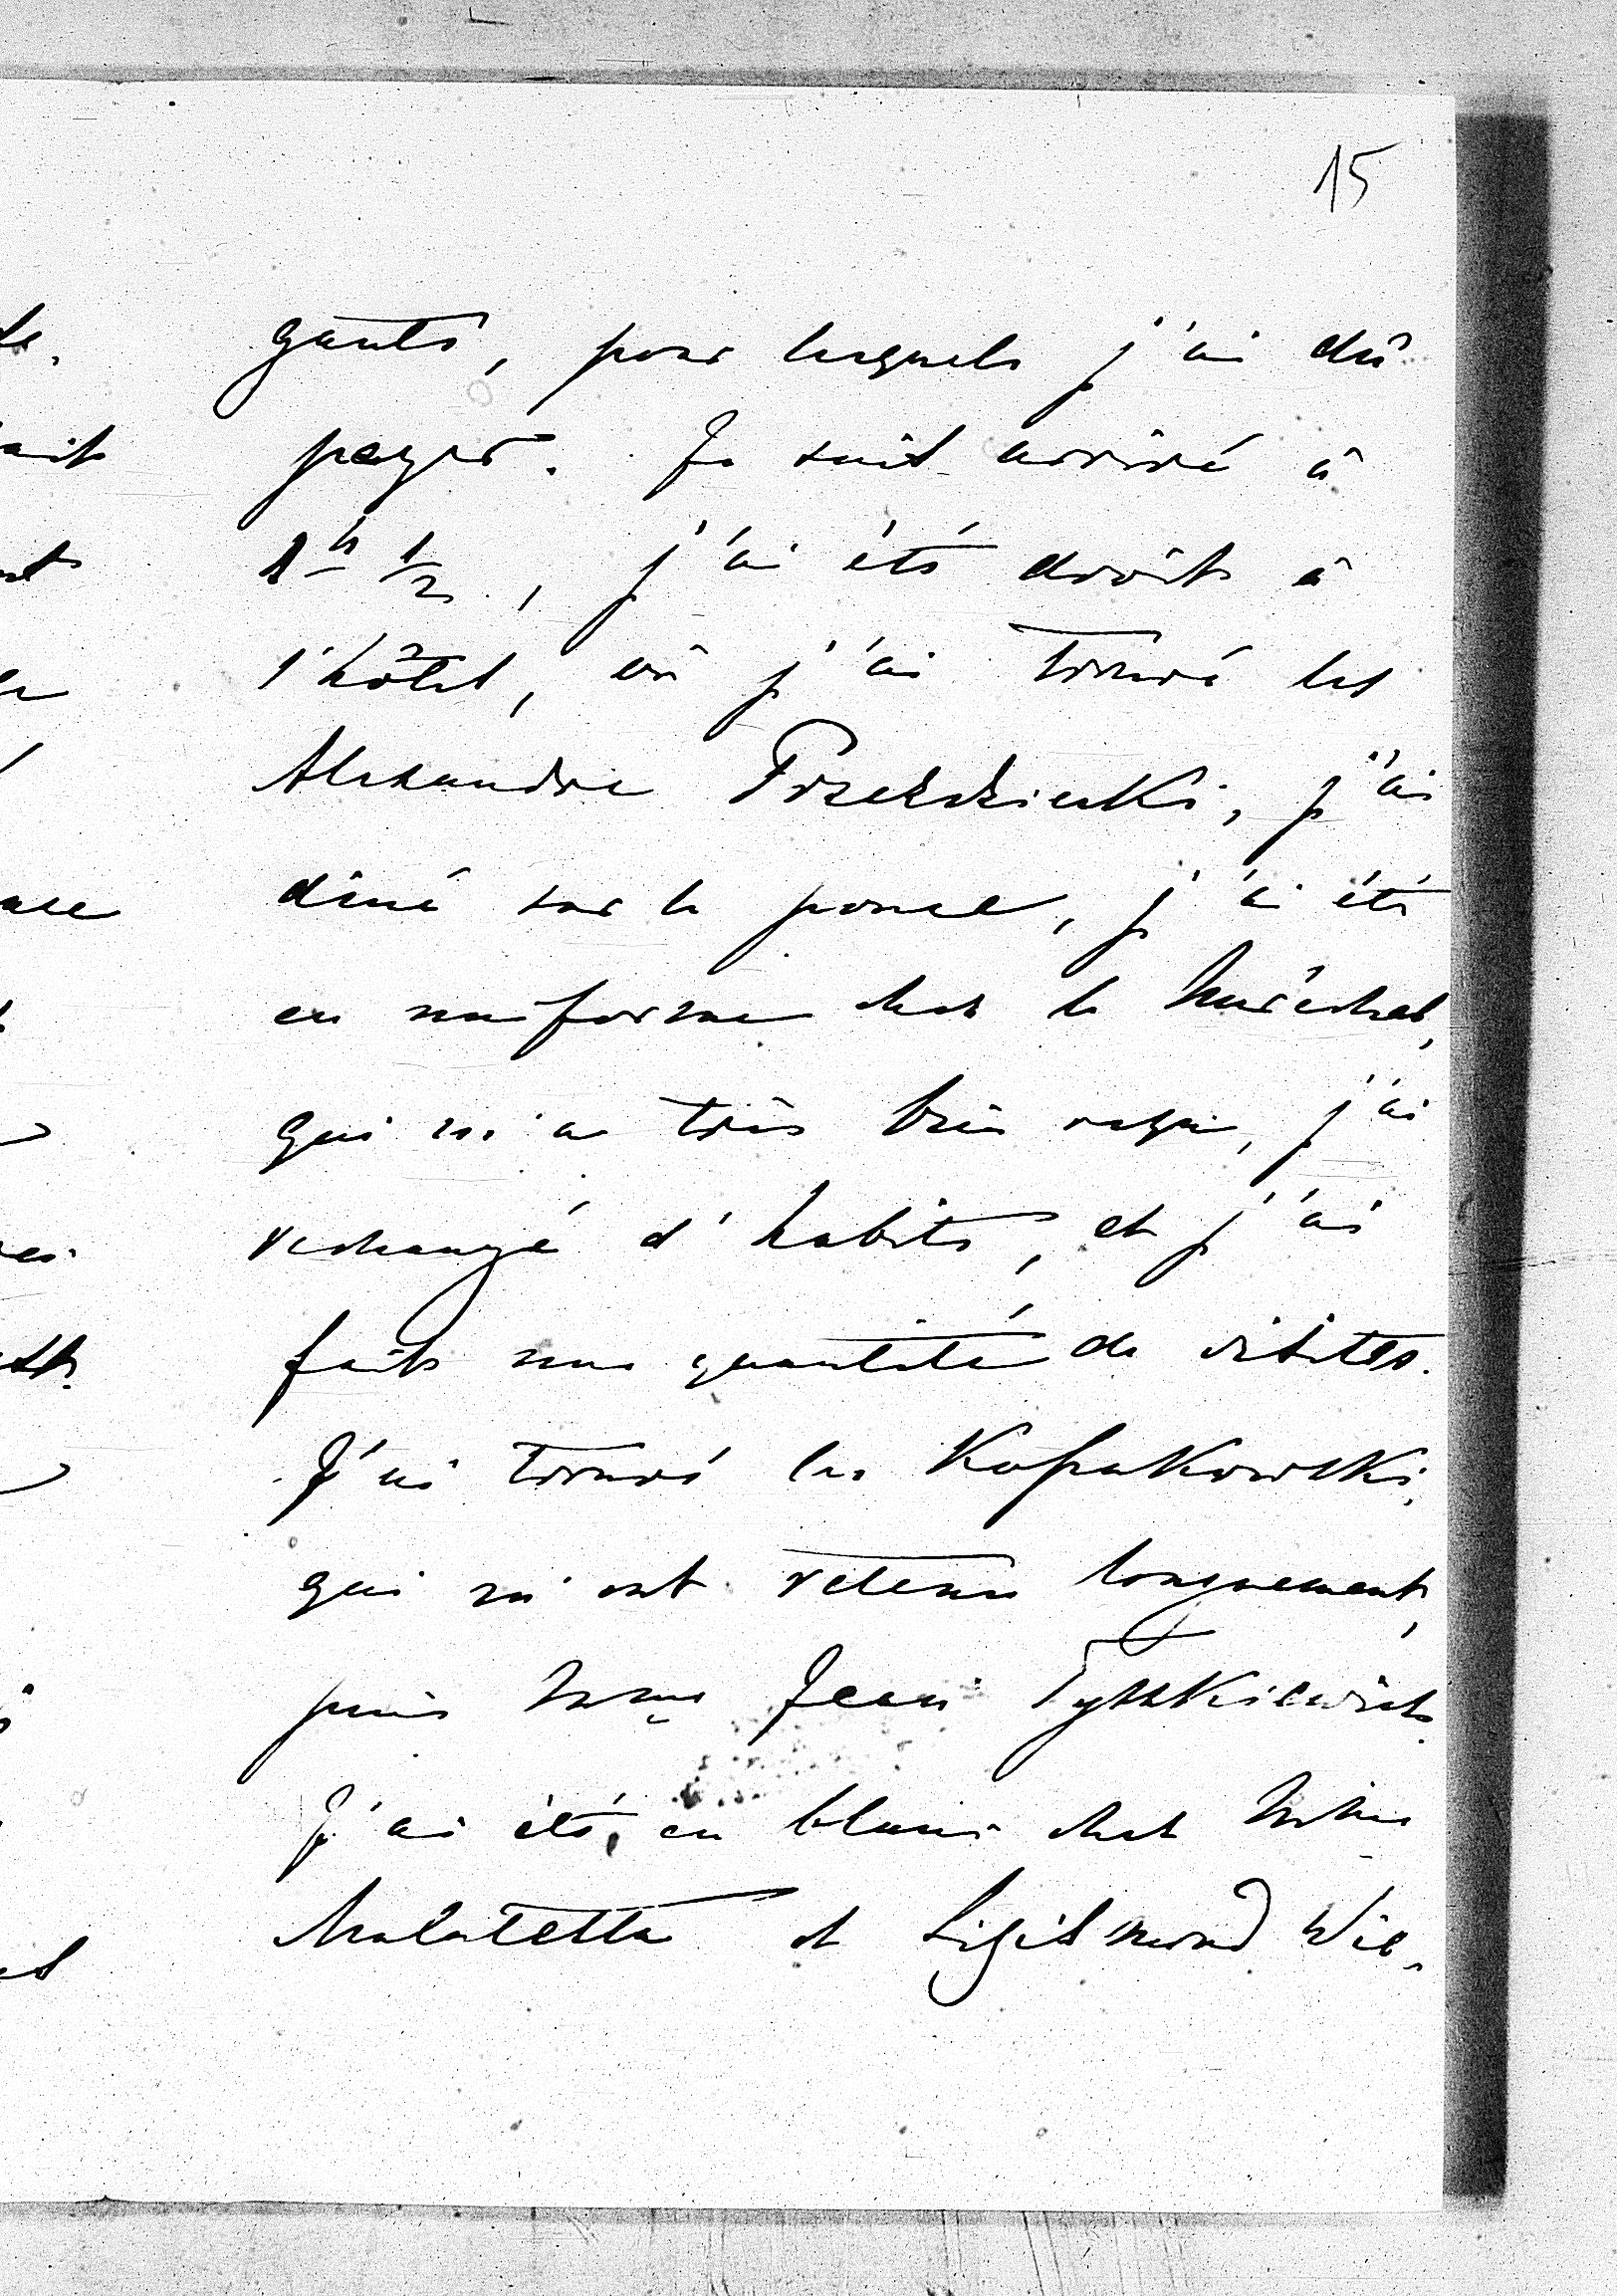 15
gants, pour lesquels j'ai dû
payer. Je suis arrivé à
1 h 1/2, j'ai été droit à
l'hôtel, où j'ai trouvé les
Alexandre Przezdziecki, j'ai
dîné sur le pouce, j'ai été
en uniforme chez le Maréchal,
qui m'a très bien reçu, j'ai
rechangé d'habits, et j'ai
fait une quantité de visites.
J'ai trouvé les Kossakowski,
qui m'ont retenu longuement,
puis Mme Jean Tyszkiewicz.
J'ai été en blanc chez Mme
Malatesta et Sigismond Wie-